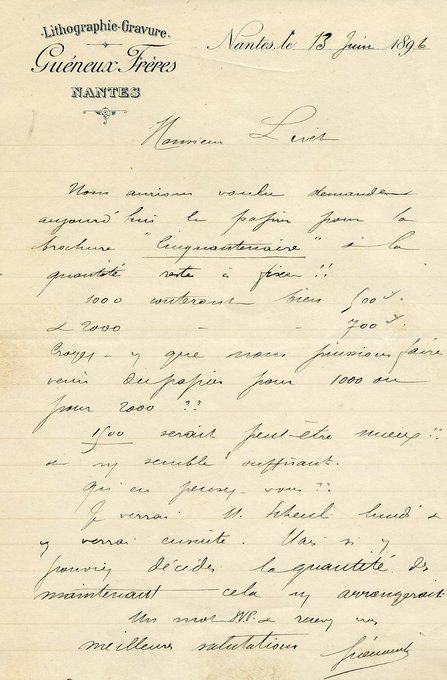 Lithographie-Gravure.
Guéneux Frères
NANTES
Nantes, le 13 Juin 1896
Monsieur Livet
Nous aurions voulu demander
aujourd'hui le papier pour la
brochure "Cinquantenaire" & la
quantité reste à fixer !!
1000 couteront bien 500
& 2000 - - 700
Croyez-y que nous puissions faire
venir du papier pour 1000 ou
pour 2000 ??
1500 serait peut-être mieux !!
& m'y semble suffisant.
Qu'en pensez-vous ??
Je verrai M. lundi &
y verrai ensuite. Mais si y
pouviez décider la quantité dès
maintenant - cela m'y arrangerait
Un mot SVP. & recevez mes
meilleures salutations